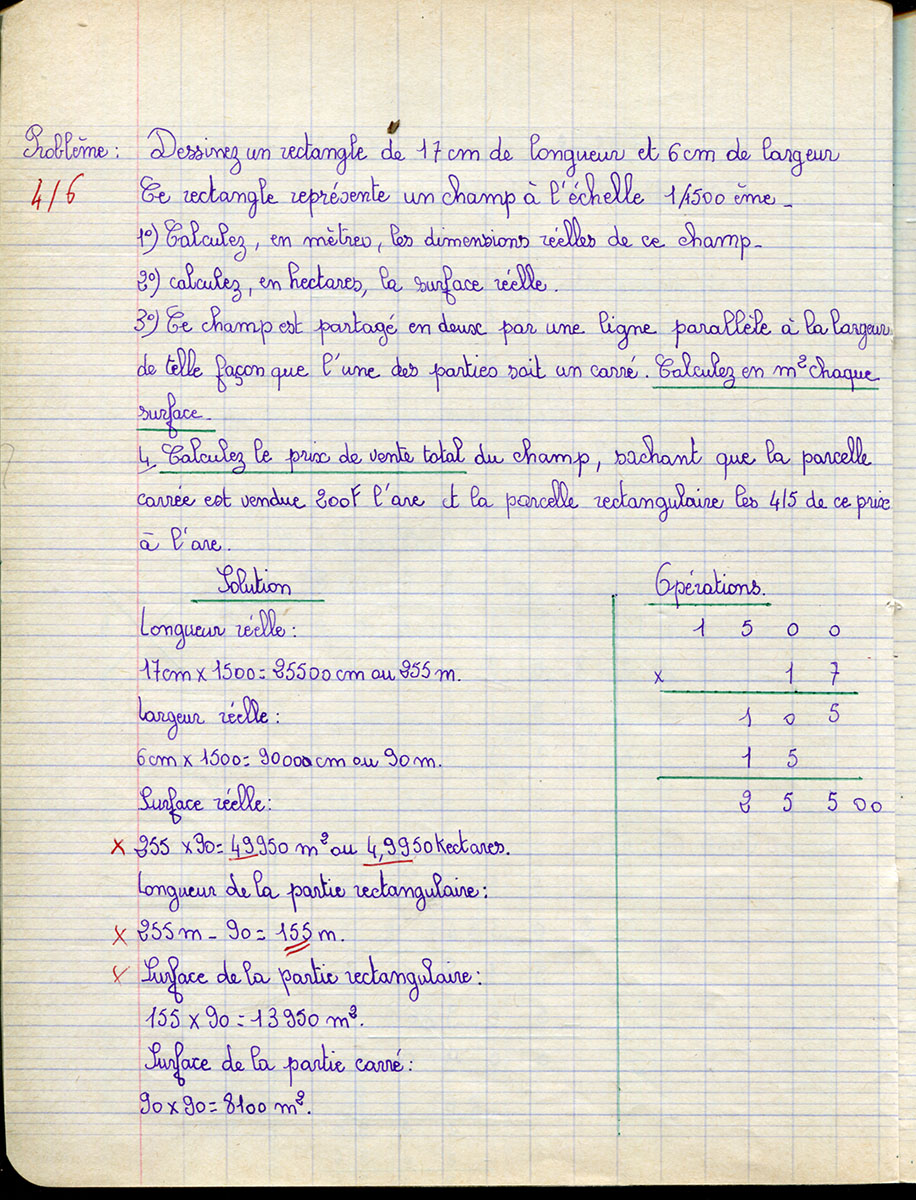 Problème : Dessinez un rectangle de 17 cm de longueur et 6 cm de largeur
4/6 Ce rectangle représente un champ à l'échelle 1/1500 ème -
1º) Calculez, en mètres, les dimensions réelles de ce champ -
2º) calculez, en hectares, la surface réelle.
3º) Ce champ est partagé en deux par une ligne parallèle à la largeur
de telle façon que l'une des parties soit un carré. Calculez en m² chaque
surface -
4. Calculez le prix de vente total du champ, sachant que la parcelle
carrée est vendue 200F l'are et la parcelle rectangulaire les 4/5 de ce prix
à l'are.
Solution
Longueur réelle :
17cm x 1500 = 25500 cm ou 255 m.
Largeur réelle :
6cm x 1500 = 90000cm ou 90 m.
Surface réelle :
x 255 x 90 = 49950 m² ou 4,9950 hectares.
Longueur de la partie rectangulaire :
x 255 m - 90 = 155 m.
x Surface de la partie rectangulaire :
155 x 90 = 13950 m².
Surface de la partie carré :
90 x 90 = 8100 m².
Opérations.
1 5 0 0
x 1 7
1 0 5
1 5
2 5 5 00